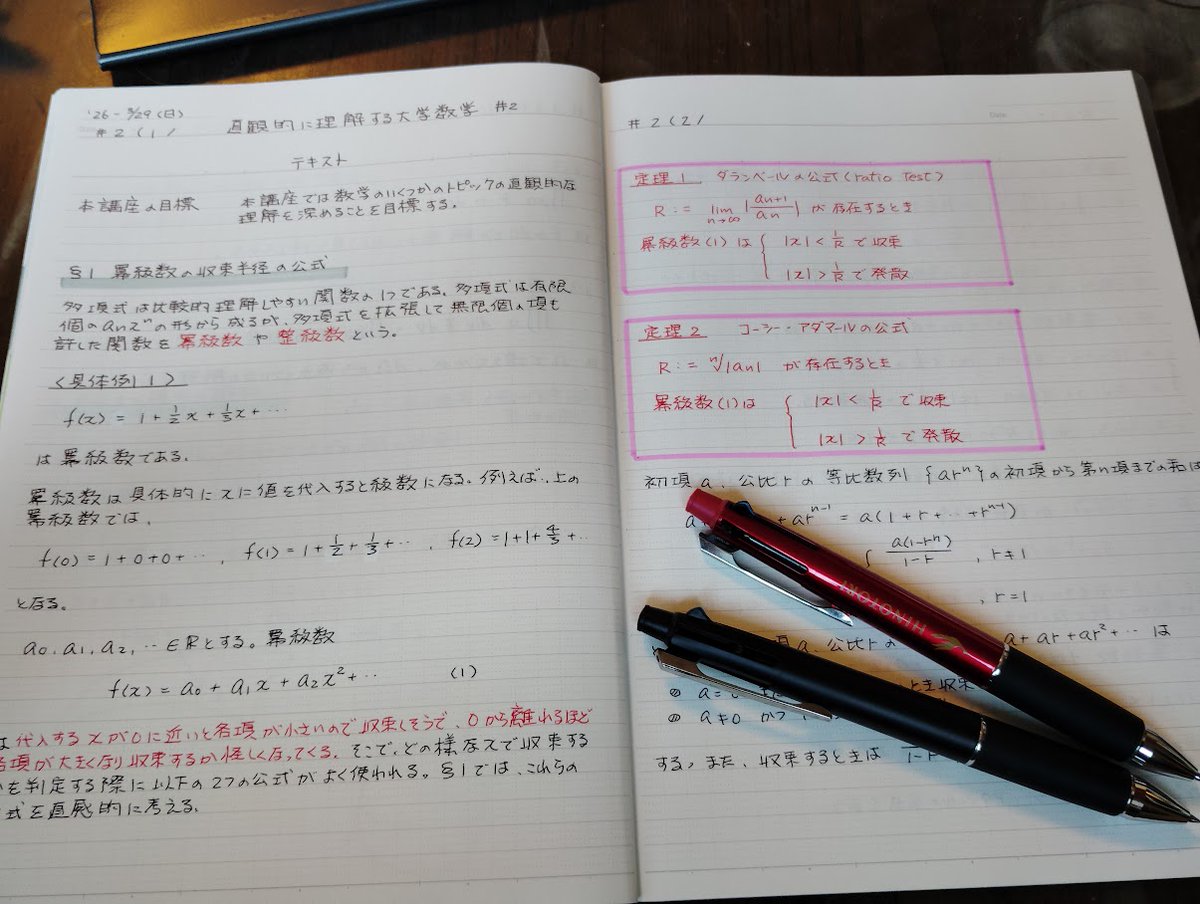 '26-3/29(日)
#2(1/
直観的に理解する大学数学 #2
テキスト
本講座の目標 本講座では数学のいくつかのトピックの直観的な
理解を深めることを目標する。
§1 羃級数の収束半径の公式
多項式は比較的理解しやすい関数の1つである。多項式は有限
個のanzⁿの形から成るが、多項式を拡張して無限個の項も
許した関数を羃級数や整級数という。
〈具体例1〉
f(x) = 1 + 1/2 x + 1/3 x + ‥
は羃級数である。
羃級数は具体的にxに値を代入すると級数になる。例えば、上の
羃級数では、
f(0) = 1+0+0+‥ , f(1) = 1+1/2+1/3+‥ , f(2) = 1+1+4/3+‥
となる。
a₀, a₁, a₂, ‥ ∈ R とする。羃級数
f(x) = a₀ + a₁x + a₂x² + ‥ (1)
は代入するxが0に近いと各項が小さいので収束しそうで、0から離れるほど
各項が大きくなり収束するか怪しくなってくる。そこで、どの様なxで収束する
を判定する際に以下の2つの公式がよく使われる。§1では、これらの
式を直感的に考える。
#2(2/
Date
定理1 ダランベールの公式(ratio test)
R := lim n→∞ |an+1/an| が存在するとき
羃級数(1)は { |x| < 1/R で収束
|x| > 1/R で発散
定理2 コーシー・アダマールの公式
R := ⁿ√|an| が存在するとき
羃級数(1)は { |x| < 1/R で収束
|x| > 1/R で発散
初項a、公比rの等比数列{arⁿ}の初項から第n項までの和は
a + arⁿ⁻¹ = a(1+r+‥+rⁿ⁻¹)
{ a(1-rⁿ)/1-r , r≠1
, r=1
a、公比rの a+ar+ar²+‥ は
a= とき収束
a≠0 かつ
する。また、収束するときは 1-r
HINOTORI